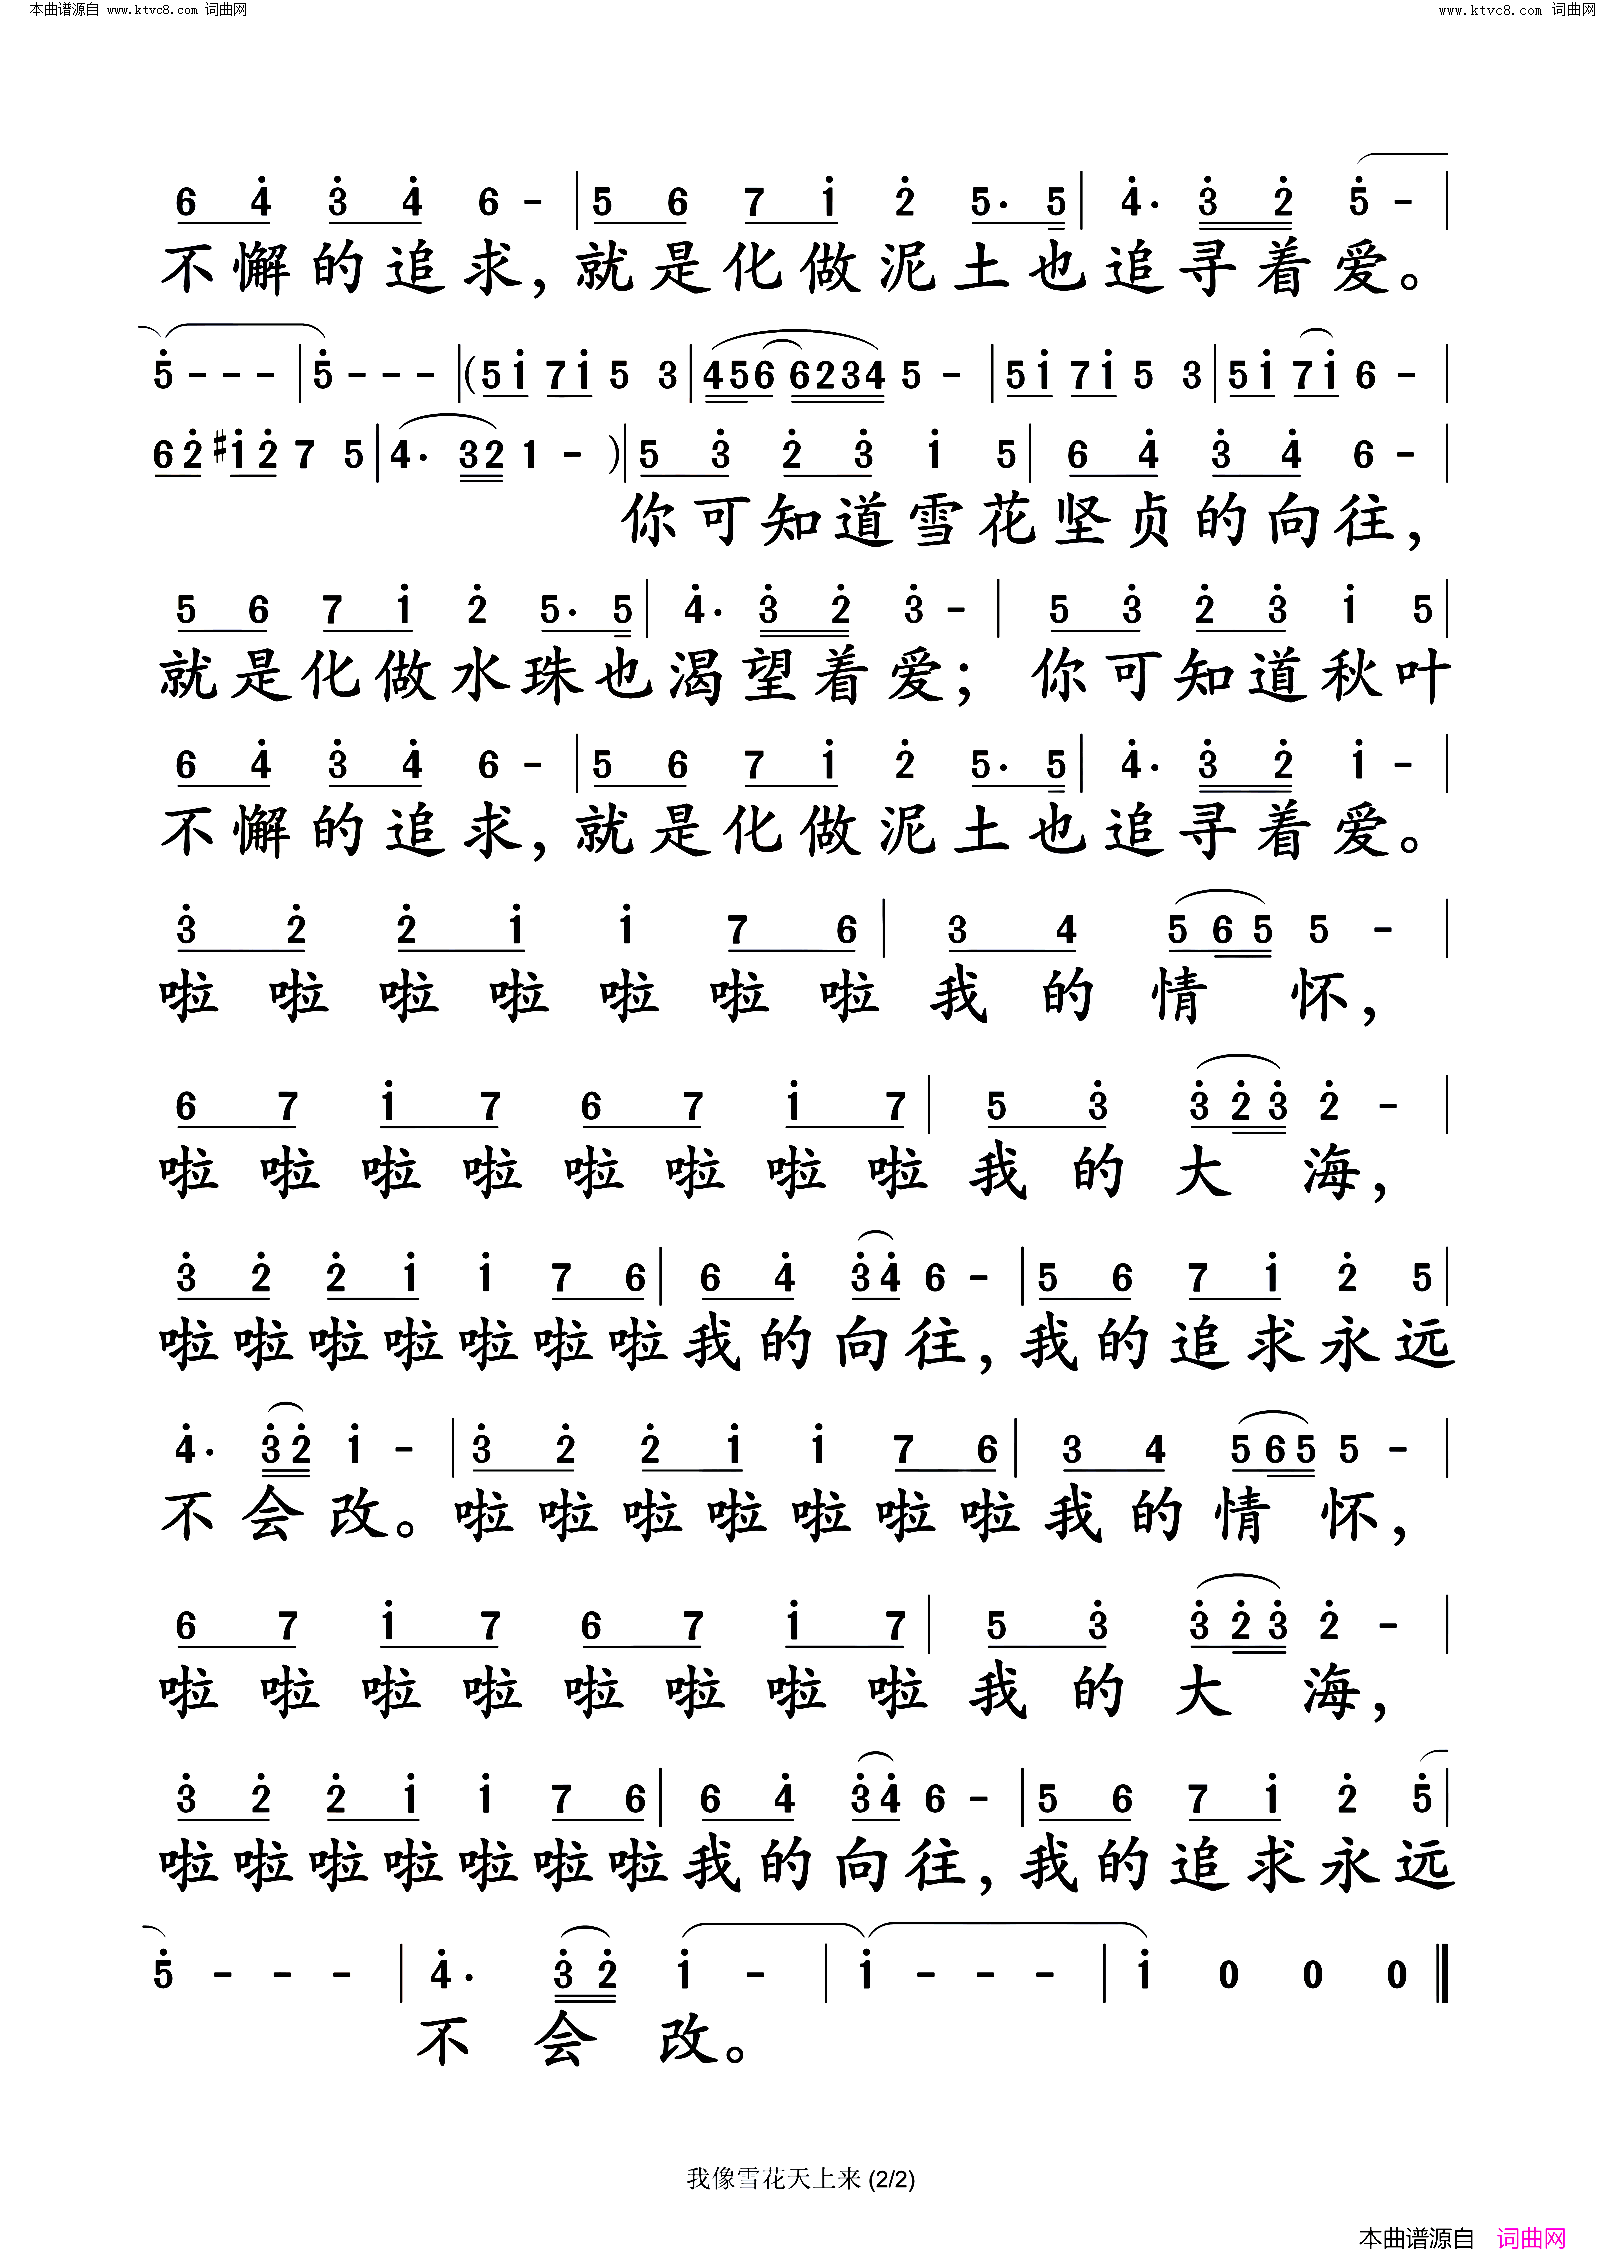 本曲谱源自 www.ktvc8.com 词曲网 www.ktvc8.com 词曲网
6 4̇ 3̇ 4̇ 6 - | 5 6 7 1̇ 2̇ 5. 5 | 4̇. 3̇ 2̇ 5̇ - |
不懈的追求,就是化做泥土也追寻着爱。
5̇ - - - | 5̇ - - - | (5 1̇ 7 1̇ 5 3 | 4 5 6 6 2 3 4 5 - | 5 1̇ 7 1̇ 5 3 | 5 1̇ 7 1̇ 6 - |
6 2̇ #1̇ 2̇ 7 5 | 4. 3 2 1 - ) | 5 3̇ 2̇ 3̇ 1̇ 5 | 6 4̇ 3̇ 4̇ 6 - |
你可知道雪花坚贞的向往,
5 6 7 1̇ 2̇ 5. 5 | 4̇. 3̇ 2̇ 3̇ - | 5 3̇ 2̇ 3̇ 1̇ 5 |
就是化做水珠也渴望着爱;你可知道秋叶
6 4̇ 3̇ 4̇ 6 - | 5 6 7 1̇ 2̇ 5. 5 | 4̇. 3̇ 2̇ 1̇ - |
不懈的追求,就是化做泥土也追寻着爱。
3̇ 2̇ 2̇ 1̇ 1̇ 7 6 | 3 4 5 6 5 5 - |
啦啦啦啦啦啦啦我的情怀,
6 7 1̇ 7 6 7 1̇ 7 | 5 3̇ 3̇ 2̇ 3̇ 2̇ - |
啦啦啦啦啦啦啦啦我的大海,
3̇ 2̇ 2̇ 1̇ 1̇ 7 6 | 6 4̇ 3̇ 4̇ 6 - | 5 6 7 1̇ 2̇ 5 |
啦啦啦啦啦啦啦我的向往,我的追求永远
4̇. 3̇ 2̇ 1̇ - | 3̇ 2̇ 2̇ 1̇ 1̇ 7 6 | 3 4 5 6 5 5 - |
不会改。啦啦啦啦啦啦啦我的情怀,
6 7 1̇ 7 6 7 1̇ 7 | 5 3̇ 3̇ 2̇ 3̇ 2̇ - |
啦啦啦啦啦啦啦啦我的大海,
3̇ 2̇ 2̇ 1̇ 1̇ 7 6 | 6 4̇ 3̇ 4̇ 6 - | 5 6 7 1̇ 2̇ 5̇ |
啦啦啦啦啦啦啦我的向往,我的追求永远
5̇ - - - | 4̇. 3̇ 2̇ 1̇ - | 1̇ - - - | 1̇ 0 0 0 ‖
不会改。
我像雪花天上来 (2/2)
本曲谱源自 词曲网